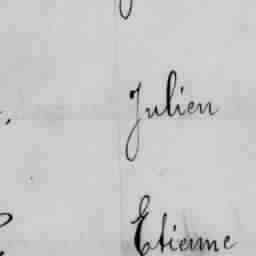 Julien
Etienne